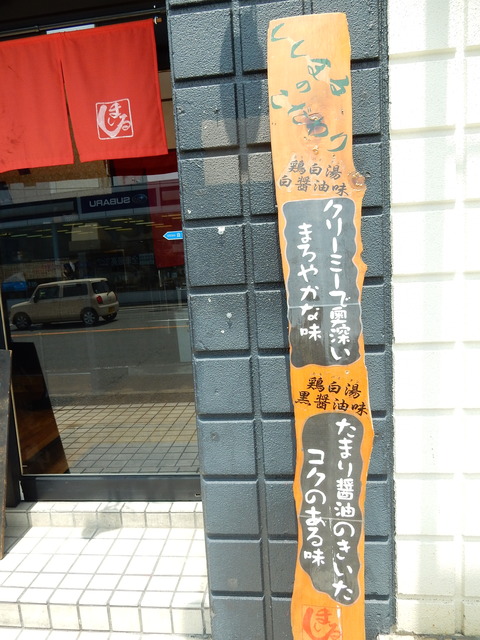 まるし
SUBARU
鶏白湯
白醤油味
クリーミーで奥深い
まろやかな味
鶏白湯
黒醤油味
たまり醤油のきいた
コクのある味
まるし